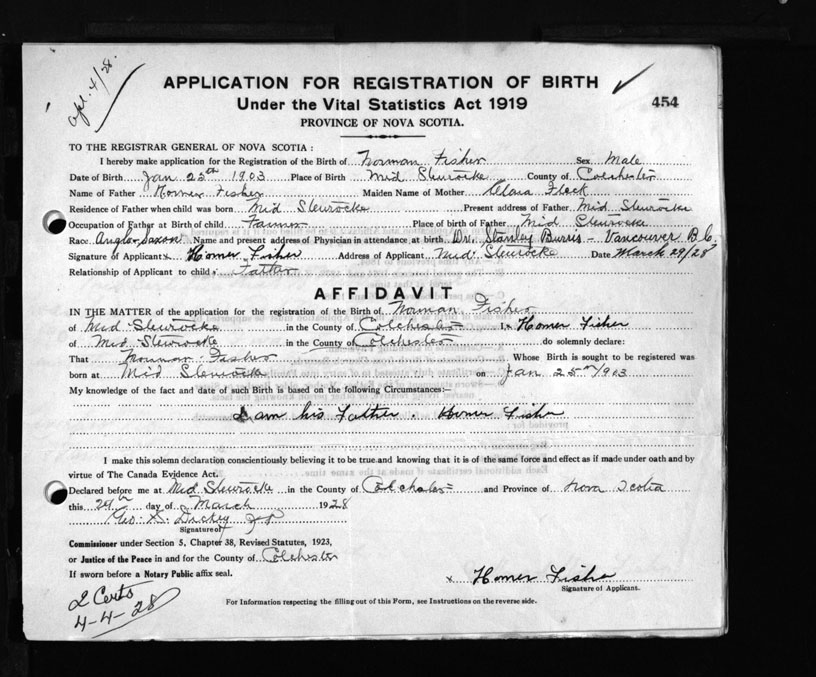 apl. 4/28.
APPLICATION FOR REGISTRATION OF BIRTH
Under the Vital Statistics Act 1919
454
PROVINCE OF NOVA SCOTIA.
TO THE REGISTRAR GENERAL OF NOVA SCOTIA :
I hereby make application for the Registration of the Birth of Norman Fisher Sex Male
Date of Birth Jan 25th 1903 Place of Birth Mid Stewiacke County of Colchester
Name of Father Homer Fisher Maiden Name of Mother Clara
Residence of Father when child was born Mid Stewiacke Present address of Father Mid Stewiacke
Occupation of Father at Birth of child Farmer Place of birth of Father Mid Stewiacke
Race Anglo-Saxon Name and present address of Physician in attendance at birth Dr. Stanley Burris - Vancouver B.C.
Signature of Applicant x Homer Fisher Address of Applicant Mid Stewiacke Date March 29/28
Relationship of Applicant to child Father
AFFIDAVIT
IN THE MATTER of the application for the registration of the Birth of Norman Fisher
of Mid Stewiacke in the County of Colchester I, x Homer Fisher
of Mid Stewiacke in the County of Colchester do solemnly declare:
That Norman Fisher Whose Birth is sought to be registered was
born at Mid Stewiacke on Jan 25th 1903
My knowledge of the fact and date of such Birth is based on the following Circumstances:—
I am his Father. Homer Fisher
I make this solemn declaration conscientiously believing it to be true and knowing that it is of the same force and effect as if made under oath and by
virtue of The Canada Evidence Act.
Declared before me at Mid Stewiacke in the County of Colchester and Province of Nova Scotia
this 29th day of March 1928
Geo. S. Dickey J.P.
Signature of
Commissioner under Section 5, Chapter 38, Revised Statutes, 1923,
or Justice of the Peace in and for the County of Colchester
If sworn before a Notary Public affix seal.
x Homer Fisher
Signature of Applicant.
2 Certs
4-4-28
For Information respecting the filling out of this Form, see Instructions on the reverse side.